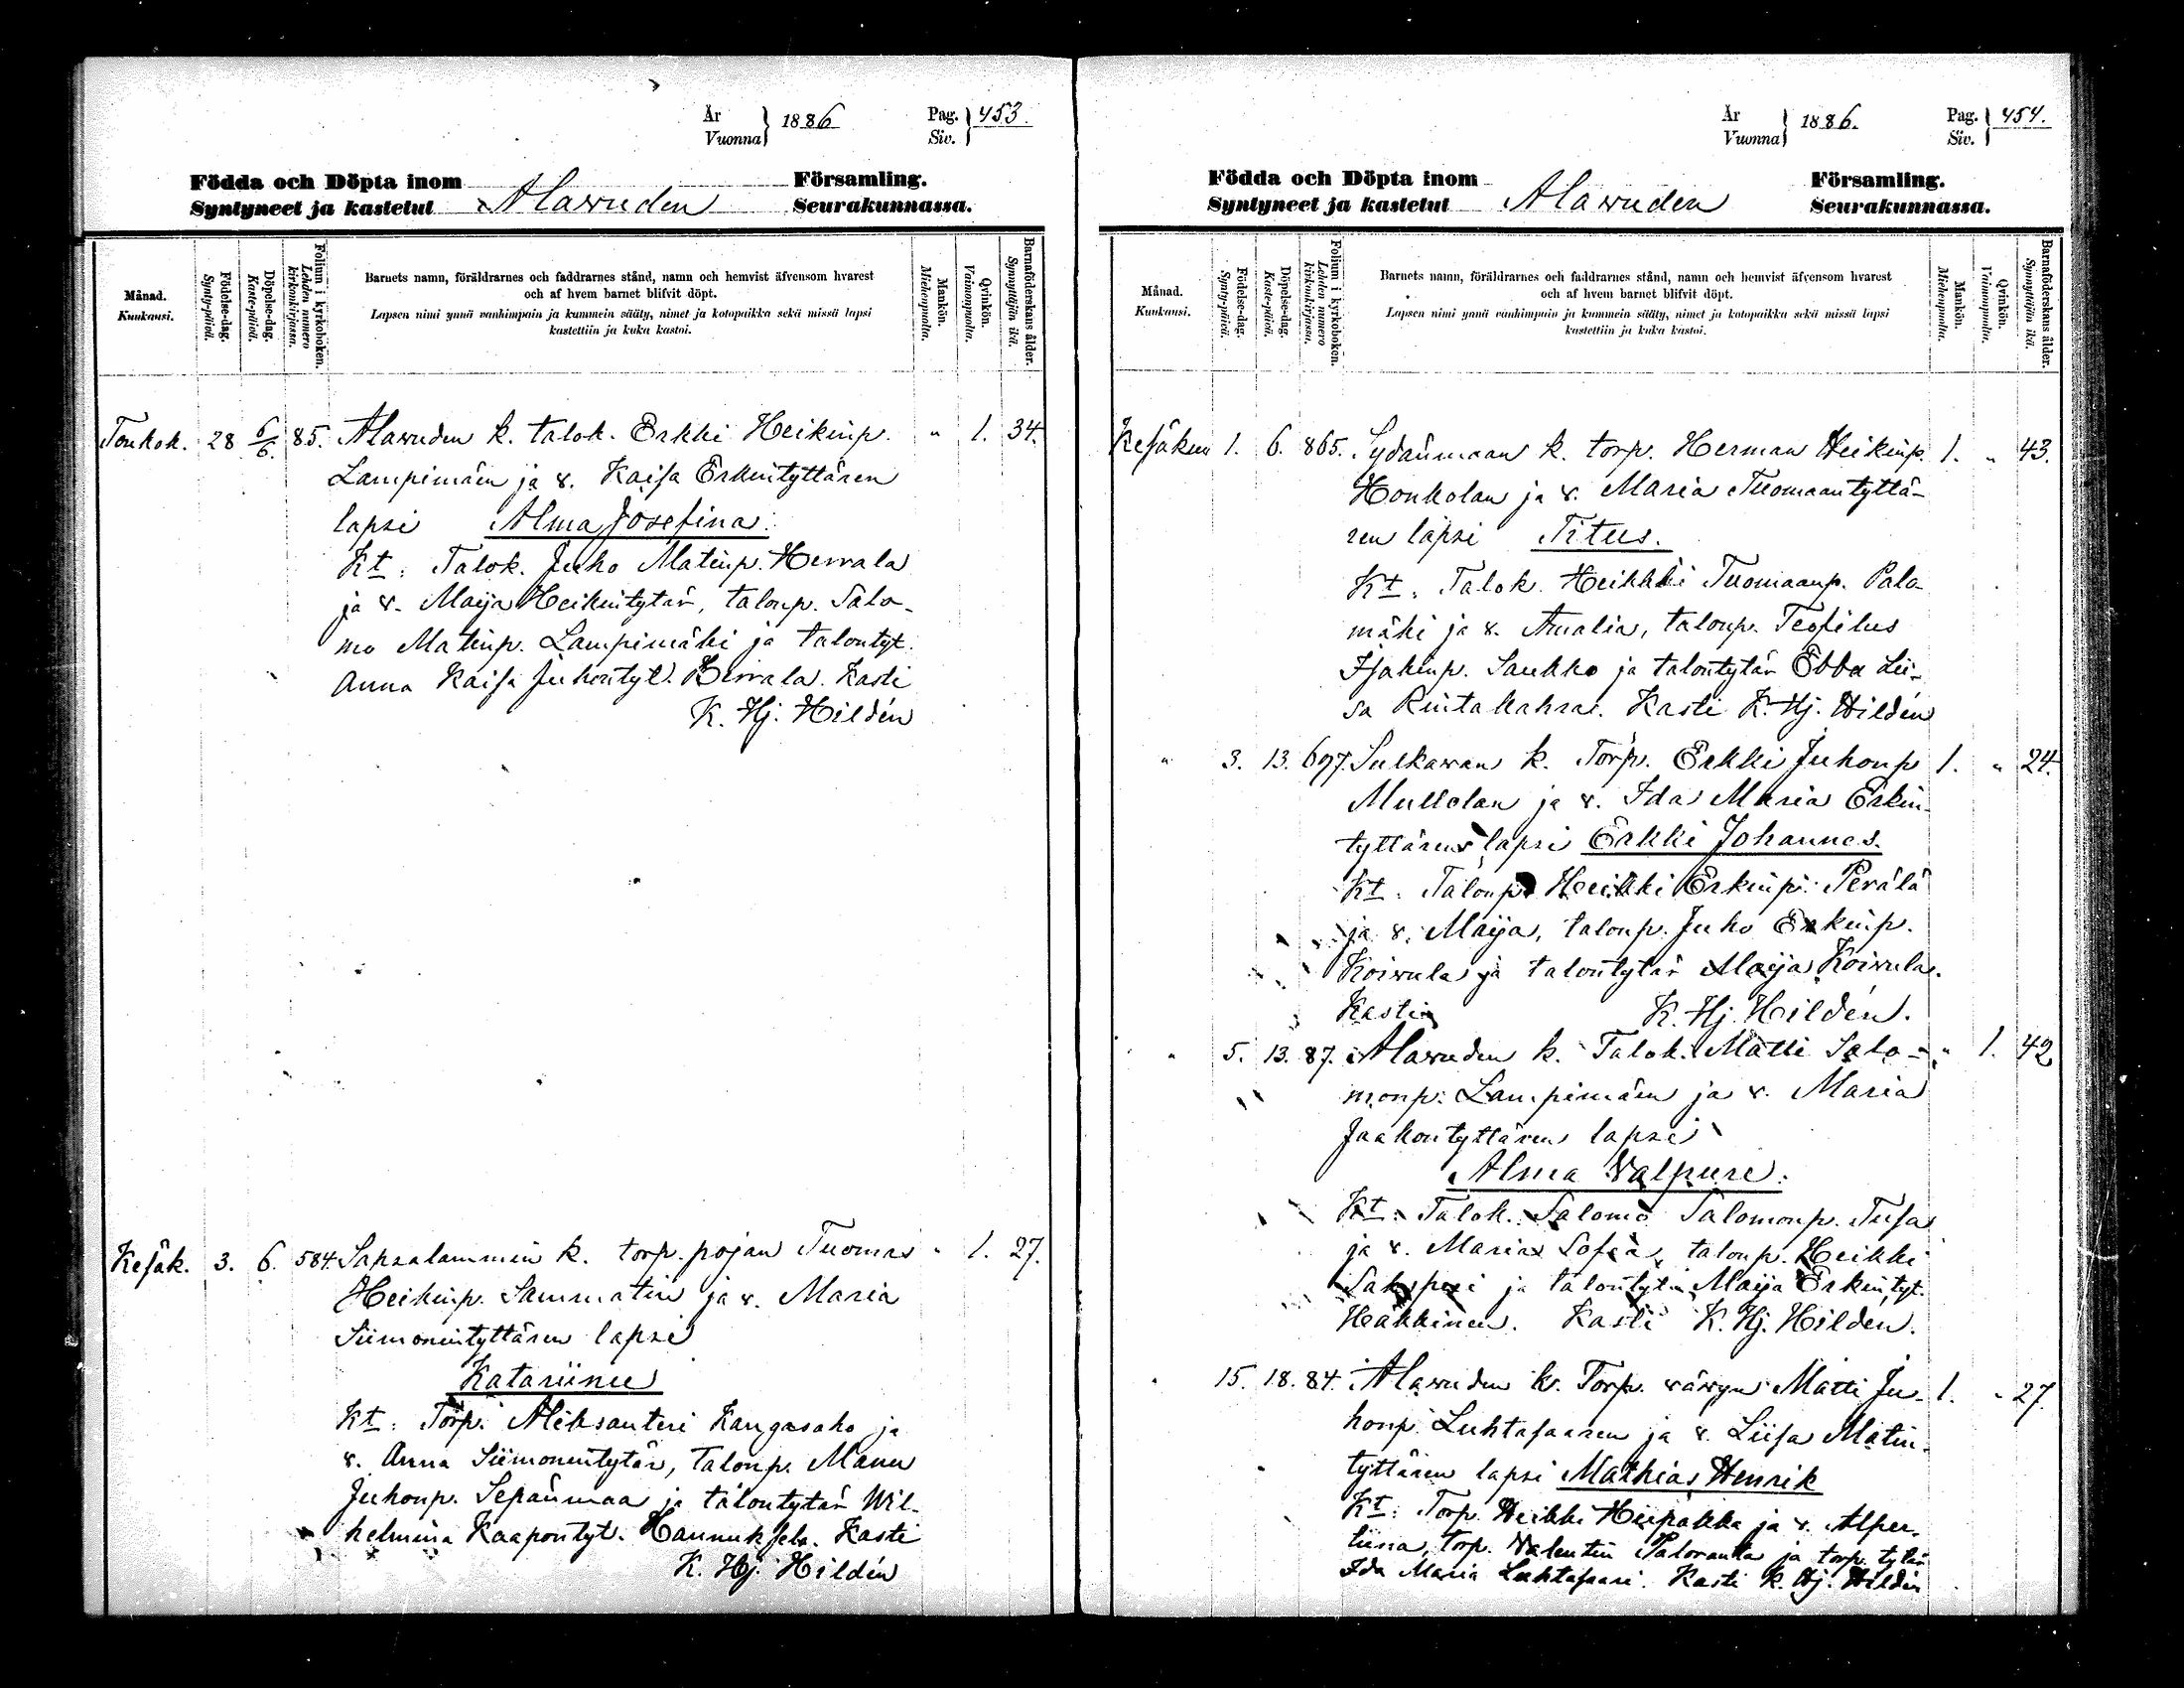 År
Vuonna } 1886 Pag.
Siv. } 453.
Födda och Döpta inom Församling.
Syntyneet ja kastetut Alawuden Seurakunnassa.
Månad.
Kuukausi.
Födelse-dag.
Synty-päivä.
Döpelse-dag.
Kaste-päivä.
Folium i kyrkoboken.
Lehden numero
kirkonkirjassa.
Barnets namn, föräldrarnes och faddrarnes stånd, namn och hemvist äfvensom hvarest
och af hvem barnet blifvit döpt.
Lapsen nimi ynnä vanhimpain ja kummein sääty, nimet ja kotopaikka sekä missä lapsi
kastettiin ja kuka kastoi.
Mankön.
Miehenpuolta.
Qvinkön.
Vaimonpuolta.
Barnaföderskans ålder.
Synnyttäjän ikä.
Toukok. 28 6/6. 85. Alawuden k. talok. Erkki Heikinp. " 1. 34.
Lampimäen ja v. Kaisa Erkintyttären
lapsi Alma Josefina.
Kt: Talok. Juho Matinp. Herrala
ja v. Maija Heikintytär, talonp. Salo-
mo Matinp. Lampimäki ja talontyt.
Anna Kaisa Juhontyt. Herrala. Kasti
K. Hj. Hildén
Kesäk. 3. 6. 584 Sapsalammin k. torp. pojan Tuomas " 1. 27.
Heikinp. Sammatin ja v. Maria
Siimonintyttären lapsi
Katariina
Kt: Torp. Aleksanteri Kangasaho ja
v. Anna Siimonintytär, Talonp. Manu
Juhonp. Sepänmaa ja talontytär Wil-
helmina Kaapontyt. Hannuksela. Kasti
K. Hj. Hildén
År
Vuonna } 1886. Pag.
Siv. } 454.
Födda och Döpta inom Församling.
Syntyneet ja kastetut Alawuden Seurakunnassa.
Månad.
Kuukausi.
Födelse-dag.
Synty-päivä.
Döpelse-dag.
Kaste-päivä.
Folium i kyrkoboken.
Lehden numero
kirkonkirjassa.
Barnets namn, föräldrarnes och faddrarnes stånd, namn och hemvist äfvensom hvarest
och af hvem barnet blifvit döpt.
Lapsen nimi ynnä vanhimpain ja kummein sääty, nimet ja kotopaikka sekä missä lapsi
kastettiin ja kuka kastoi.
Mankön.
Miehenpuolta.
Qvinkön.
Vaimonpuolta.
Barnaföderskans ålder.
Synnyttäjän ikä.
Kesäkuu 1. 6. 865. Sydänmaan k. torp. Herman Heikinp. 1. " 43.
Honkolan ja v. Maria Tuomaantyttä-
ren lapsi Titus.
Kt: Talok. Heikkki Tuomaanp. Palo-
mäki ja v. Amalia, talonp. Teofilus
Isakinp. Saukko ja talontytär Ebba Lii-
sa Rintakahra. Kasti K. Hj. Hildén
" 3. 13. 697. Sulkawan k. Torp. Erkki Juhonp 1. " 24.
Mullolan ja v. Ida Maria Erkin-
tyttären lapsi Erkki Johannes.
Kt: Talonp. Heikki Erkinp. Perälä
ja v. Maija, talonp. Juho Erkinp.
Koiwula ja talontytär Maija Koiwula.
Kasti K. Hj. Hildén.
" 5. 13. 87. Alawuden k. Talok. Matti Salo- " 1. 42
monp. Lampimäen ja v. Maria
Jaakontyttären lapsi
Alma Valpuri.
Kt: Talok. Salomo Salomonp. Tusa
ja v. Maria Sofia, talonp. Heikki
ja talontytär Maija Erkintyt.
Hakkinen. Kasti K. Hj. Hildén.
" 15. 18. 84. Alawuden k. Torp. wäwyn Matti Ju- 1. " 27.
honp. Luhtasaaren ja v. Liisa Matin-
tyttären lapsi Mathias Henrik
Kt: Torp. Heikki ja v. Alper-
tiina, torp. Valentin Paloranta ja torp. tytär
Ida Maria Luhtasaari. Kasti K. Hj. Hildén